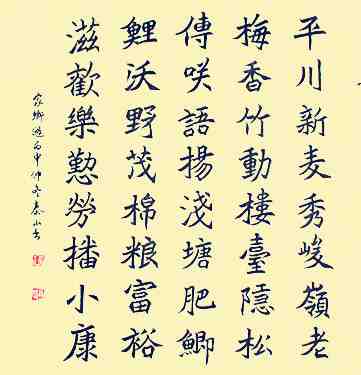 平川新麦秀峻嶺老
梅香竹動樓臺隱松
傳咲語揚淺塘肥鯽
鯉沃野茂棉粮富裕
滋歡樂懃勞播小康
家鄉遊丙申仲冬